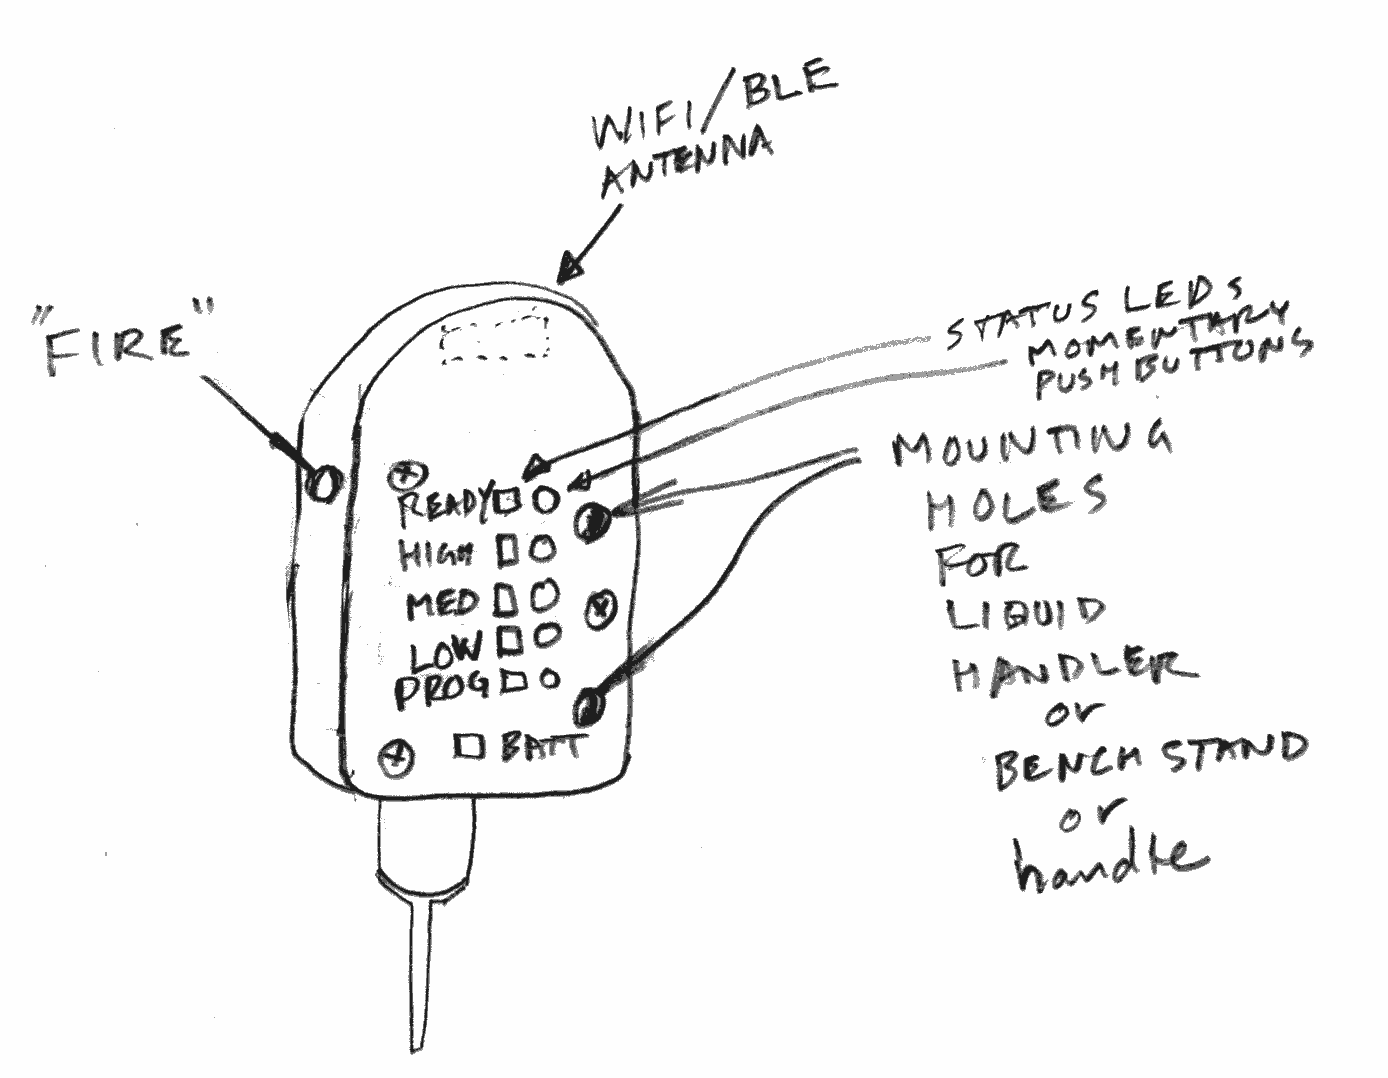 WIFI/BLE
ANTENNA
"FIRE"
STATUS LEDS
MOMENTARY
PUSH BUTTONS
MOUNTING
HOLES
FOR
LIQUID
HANDLER
or
BENCH STAND
or
handle
READY
HIGH
MED
LOW
PROG
BATT